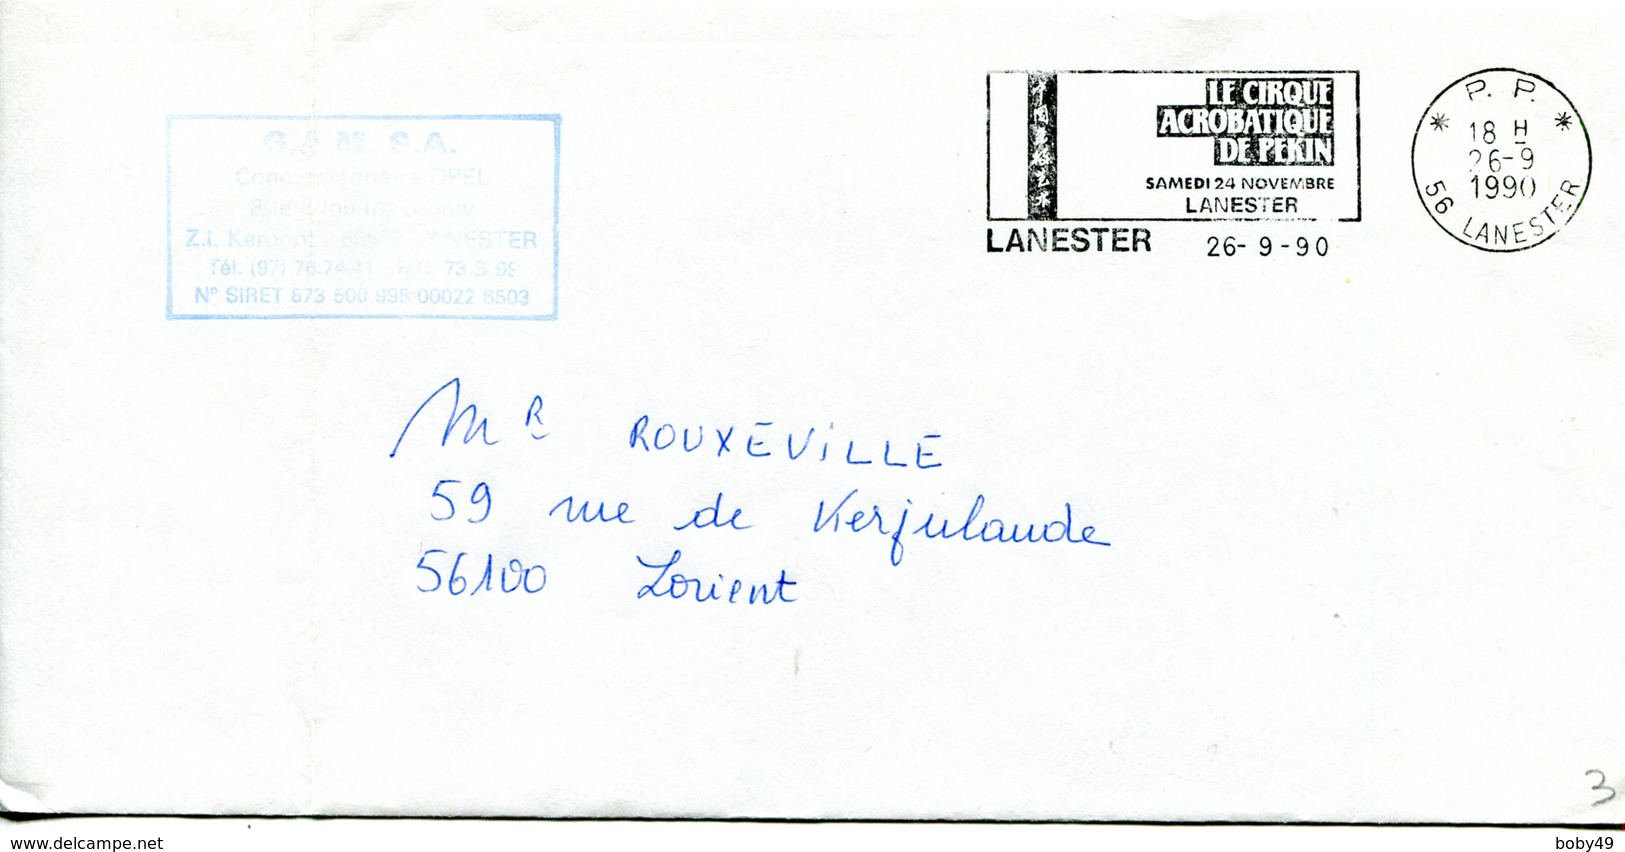 G.A.M. S.A.
OPEL
Z.I. LANESTER
Tél. (97) 76.74.11 R.C. 73 B 99
N° SIRET 873 500 995 00022 6503
LE CIRQUE
ACROBATIQUE
DE PEKIN
SAMEDI 24 NOVEMBRE
LANESTER
LANESTER 26-9-90
P. P.
18 H
26-9
1990
56 LANESTER
Mr ROUXEVILLE
59 rue de Kerjulaude
56100 Lorient
3
www.delcampe.net
boby49